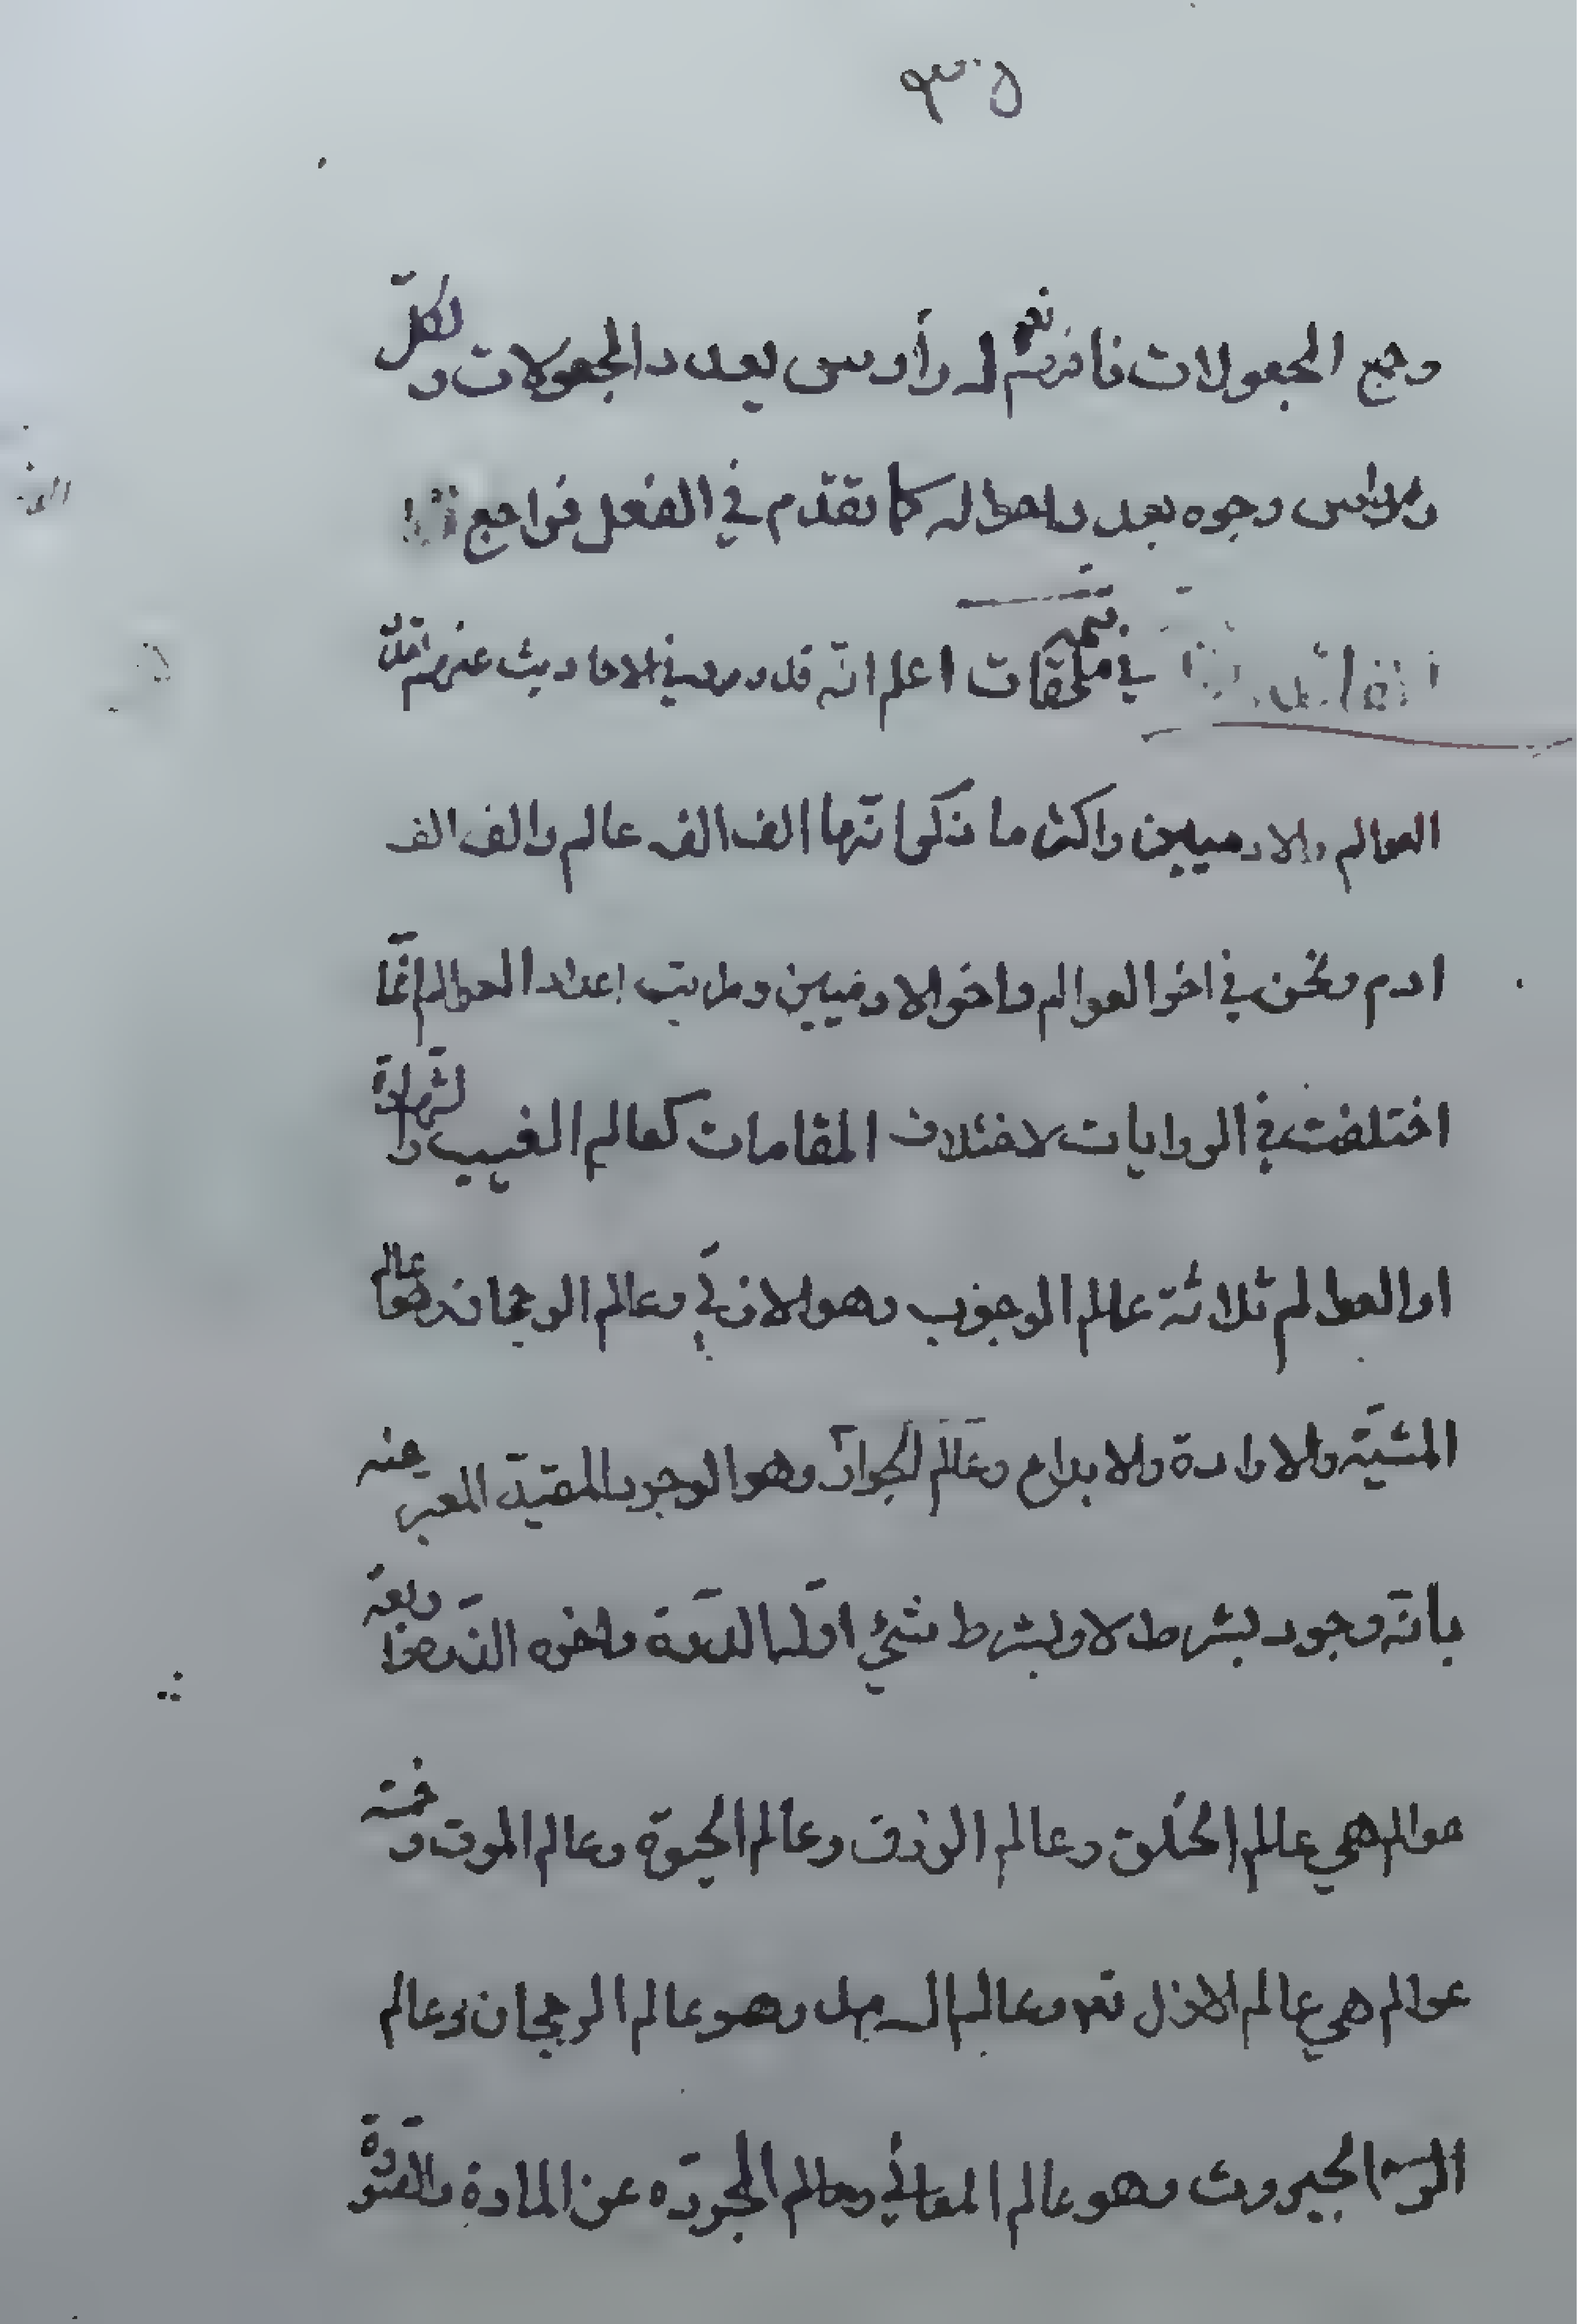 وجميع المجعولات فافهم نعم له رأوس بعدد المجعولات ولكل
رأس وجوه بعدد احواله كما تقدّم في الفعل فراجع
في ملحقات اعلم انّه قد ورد في الاحاديث عنهم
العوالم والادميين واكثر ما ذكر انّها الف الف عالم والف الف
ادم ونحن في اخر العوالم واخر الادميين ومراتب اعداد العوالم انّما
اختلفت في الروايات لاختلاف المقامات كعالم الغيب والشهادة
او العوالم ثلاثة عالم الوجوب وهو الازلي وعالم الرجحان وهو عالم
المشيّة والارادة والابداع وعالم الجواز وهو الوجود المقيّد المعبر عنه
بانّه وجود بشرط لا وبشرط شيء اوّله الدرّة واخره الذرّة واربعة
عوالم هي عالم الخلق وعالم الرزق وعالم الحيوة وعالم الموت وخمسة
عوالم هي عالم الازل وعالم السرمد وهو عالم الرجحان وعالم
الجبروت وهو عالم المعاني وعالم المجرّده عن المادة والمدّة